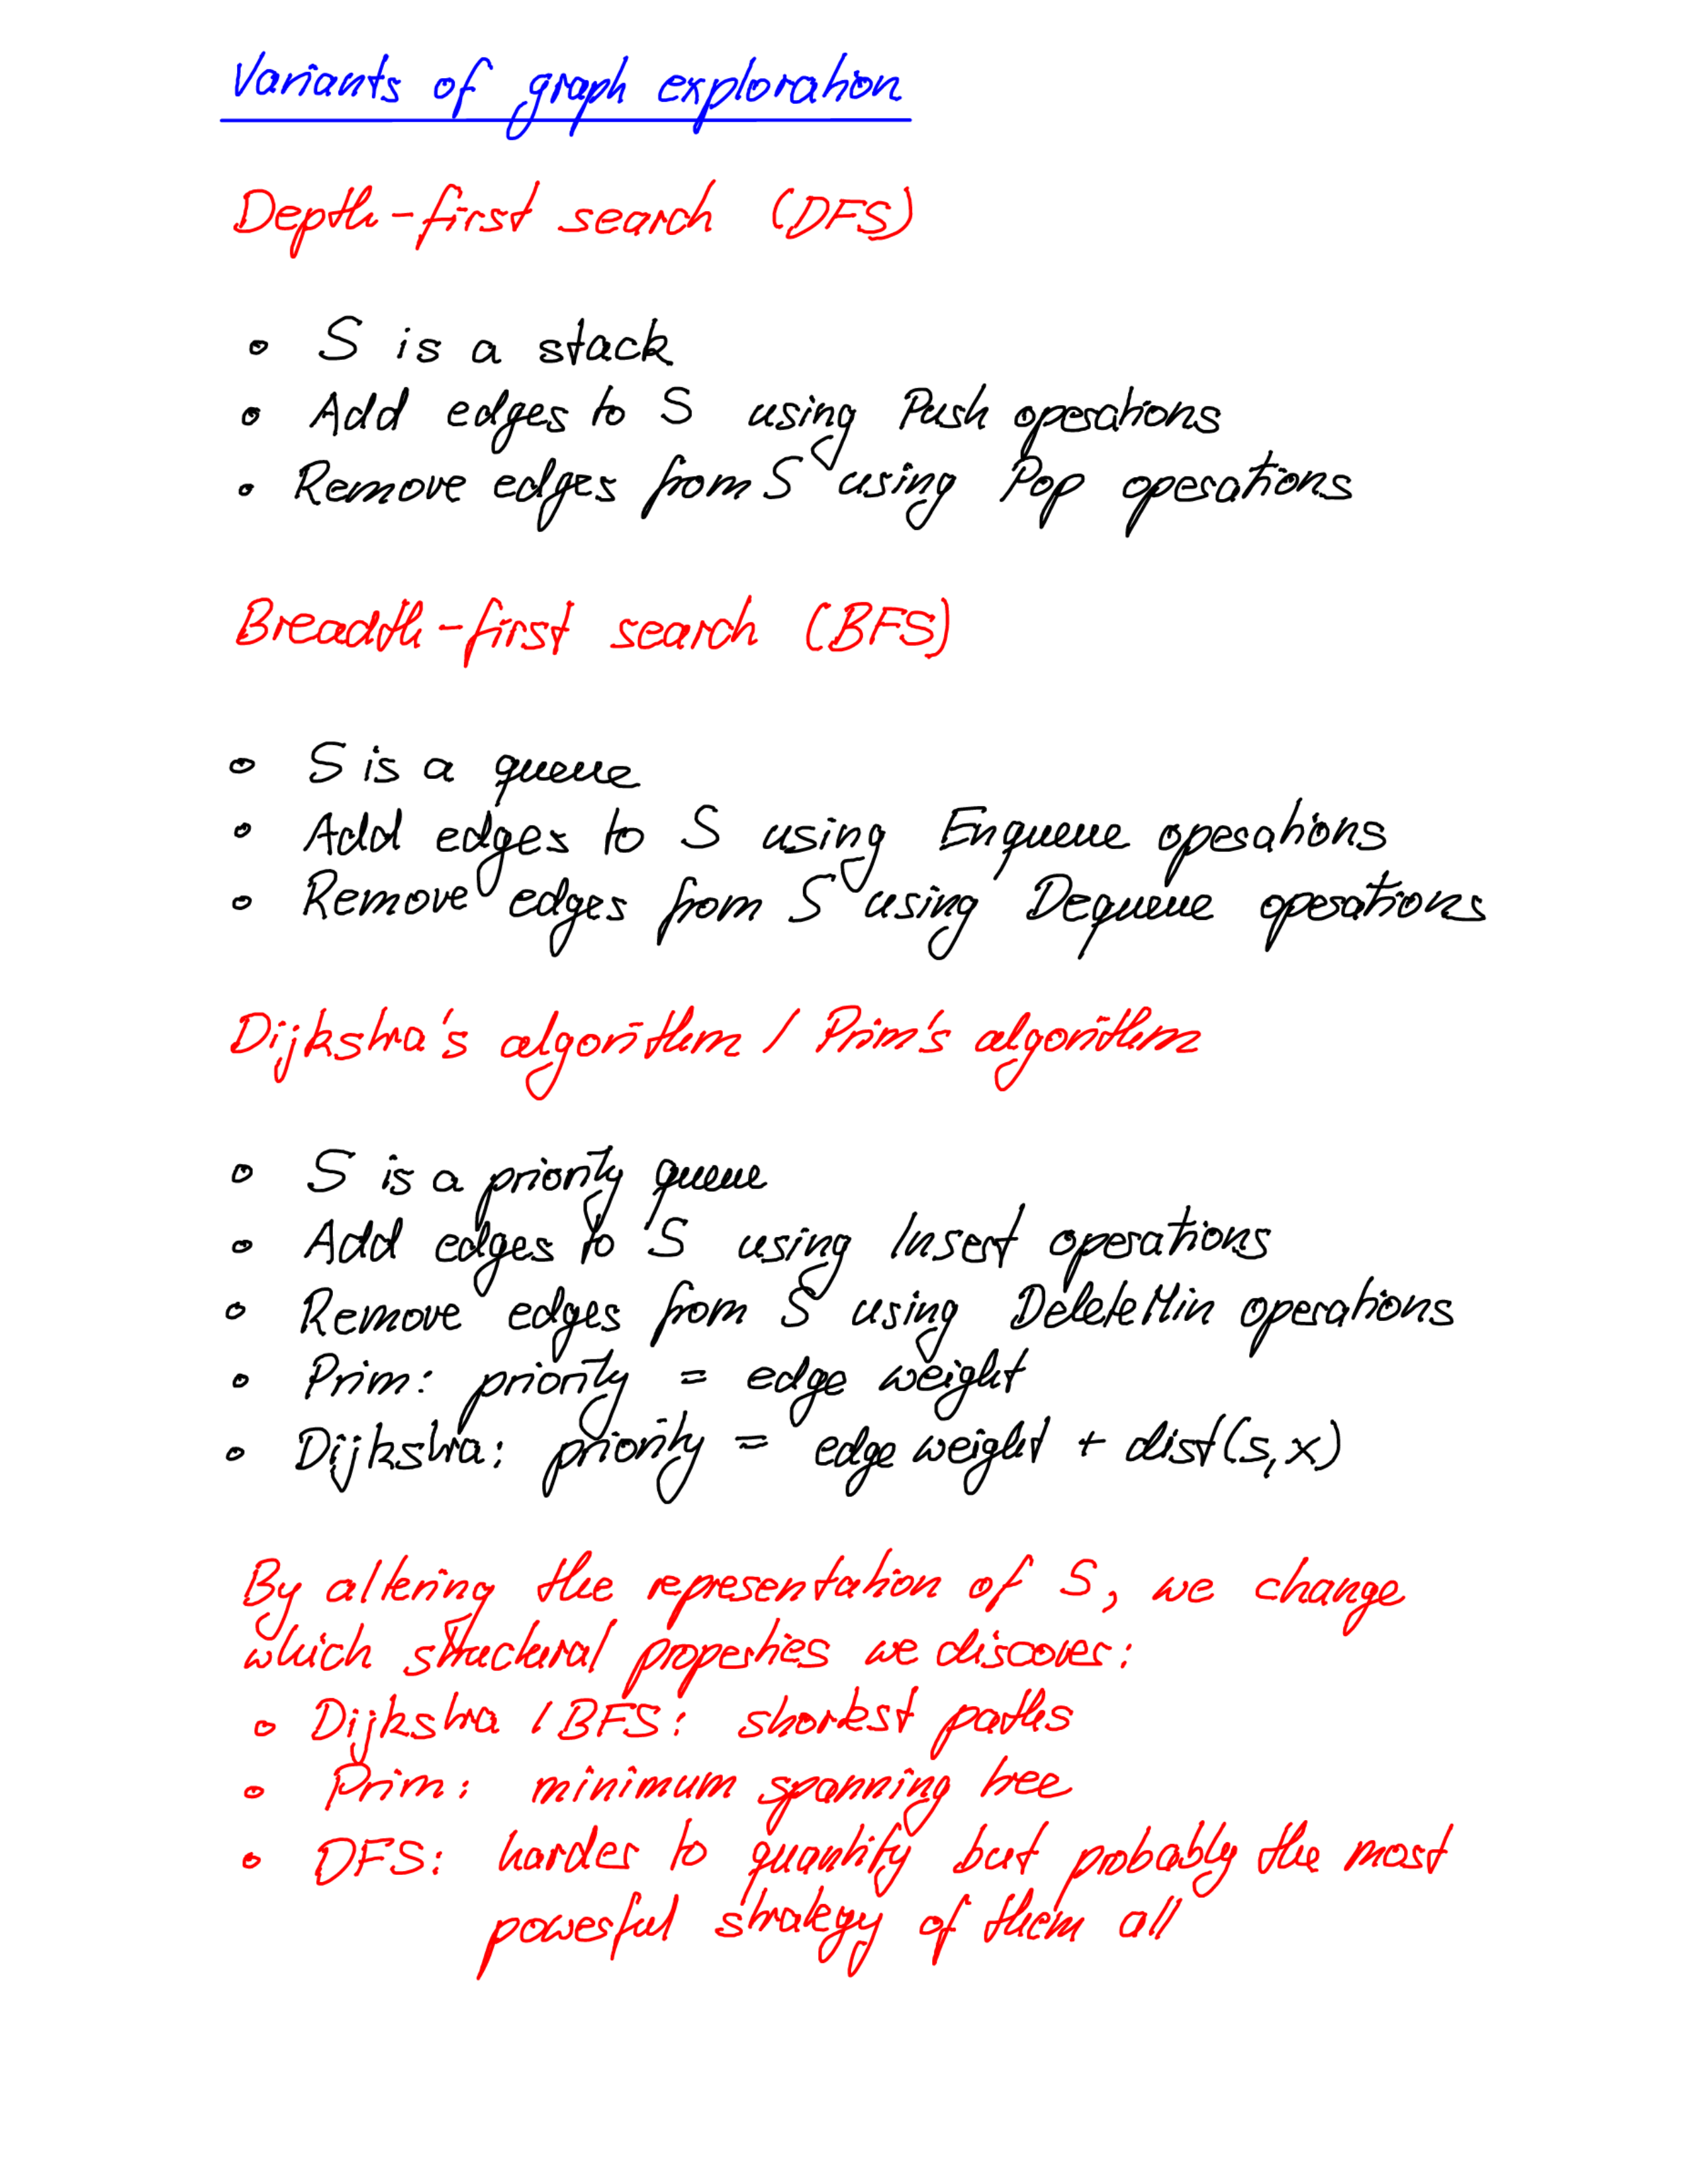 Variants of graph exploration
Depth-first search (DFS)
• S is a stack
• Add edges to S using Push operations
• Remove edges from S using Pop operations
Breadth-first search (BFS)
• S is a queue
• Add edges to S using Enqueue operations
• Remove edges from S using Dequeue operations
Dijkstra's algorithm / Prim's algorithm
• S is a priority queue
• Add edges to S using Insert operations
• Remove edges from S using DeleteMin operations
• Prim: priority = edge weight
• Dijkstra: priority = edge weight + dist(s,x)
By altering the representation of S, we change
which structural properties we discover:
• Dijkstra / BFS: shortest paths
• Prim: minimum spanning tree
• DFS: harder to quantify but probably the most
powerful strategy of them all